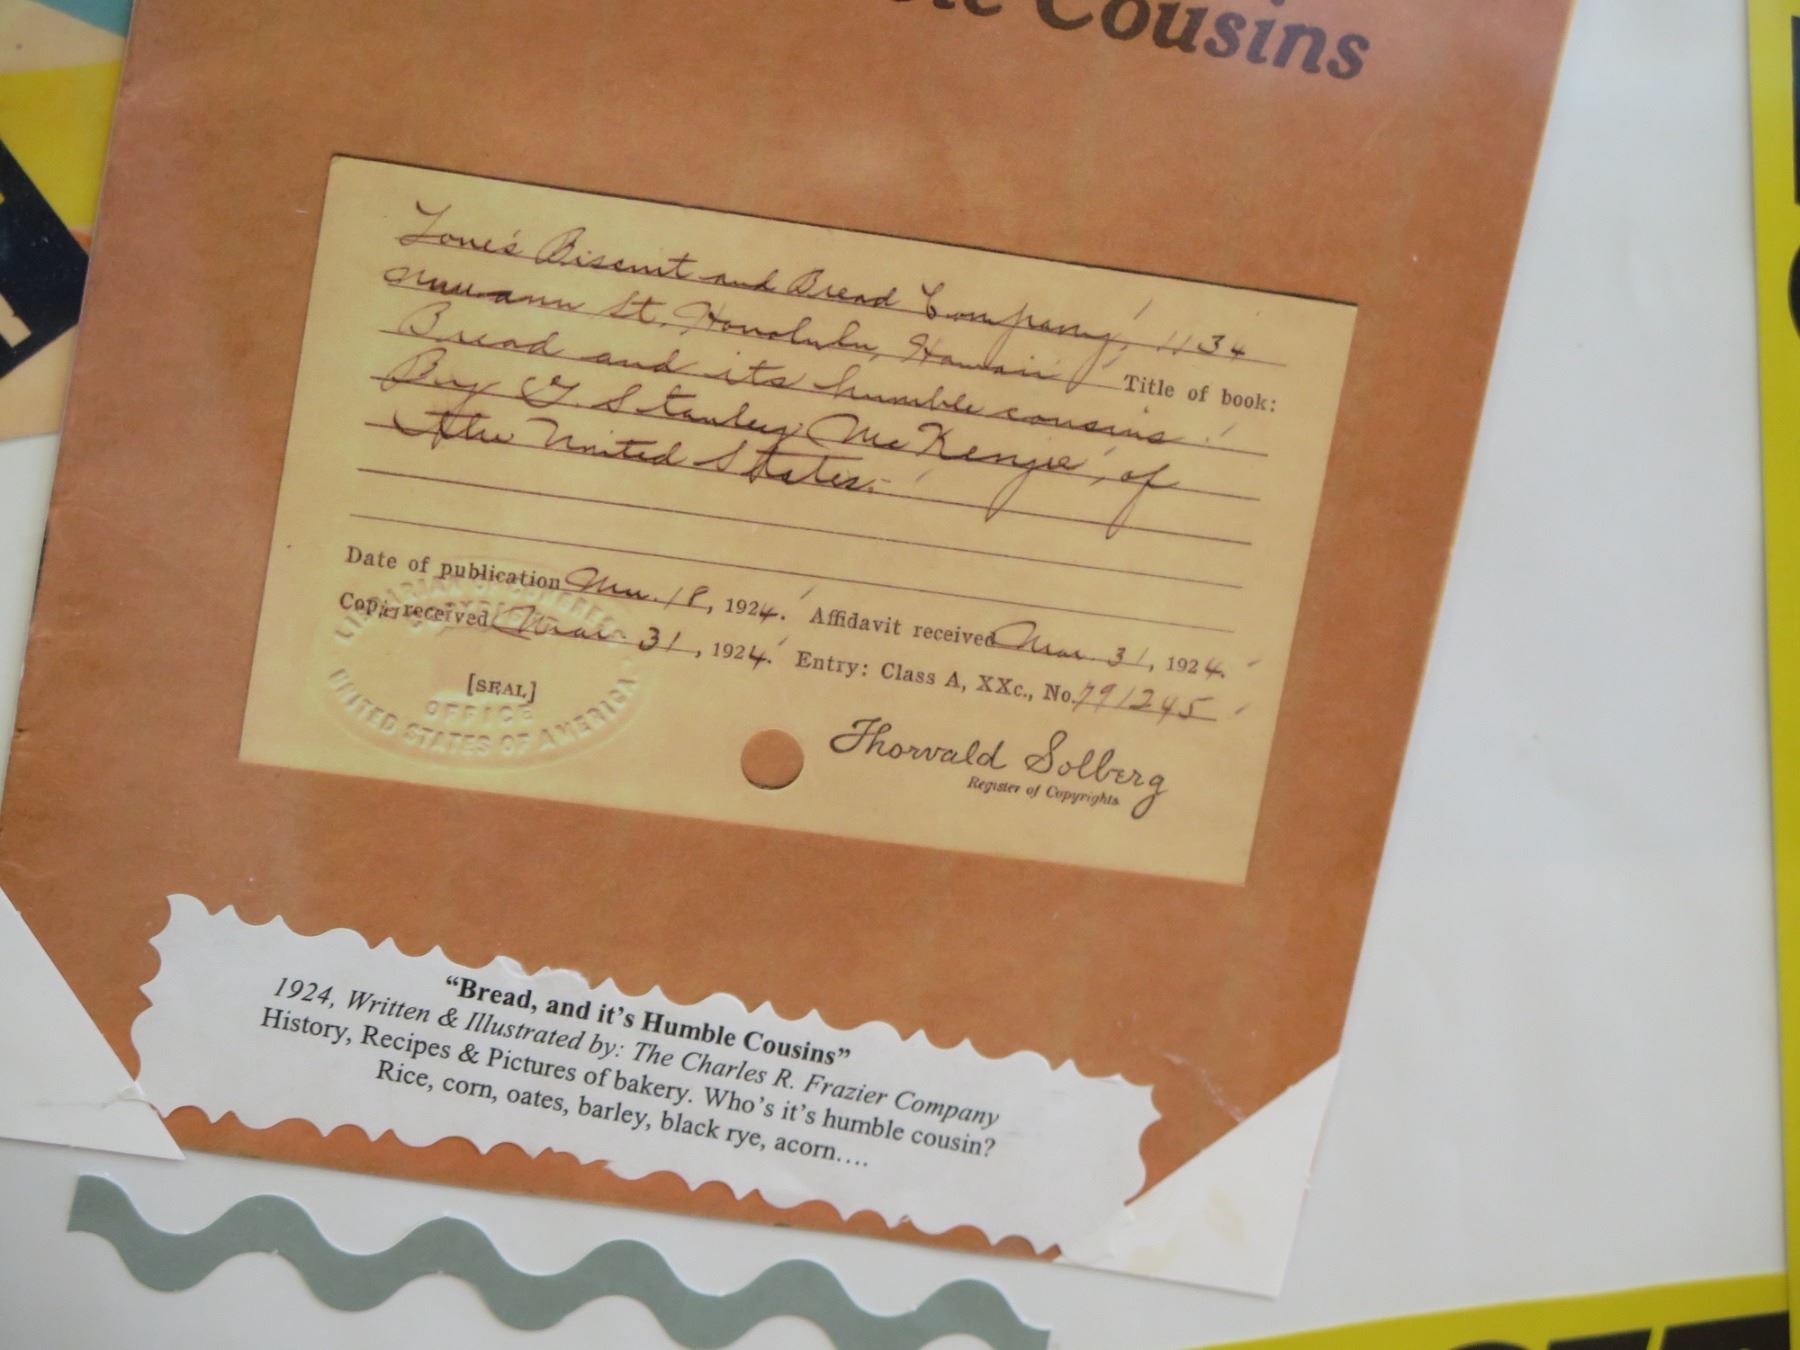 Cousins
Love's Biscuit and Bread Company, 1134
Nuuanu St., Honolulu, Hawaii Title of book:
Bread and its humble cousins.
By G. Stanley McKenzie, of
the United States.
Date of publication Mar. 18, 1924. Affidavit received Mar. 31, 1924.
Copies received Mar. 31, 1924. Entry: Class A, XXc., No. 791245
LIBRARIAN OF CONGRESS
[SEAL]
OFFICE
UNITED STATES OF AMERICA
Thorvald Solberg
Register of Copyrights
“Bread, and it's Humble Cousins”
1924, Written & Illustrated by: The Charles R. Frazier Company
History, Recipes & Pictures of bakery. Who's it's humble cousin?
Rice, corn, oates, barley, black rye, acorn....